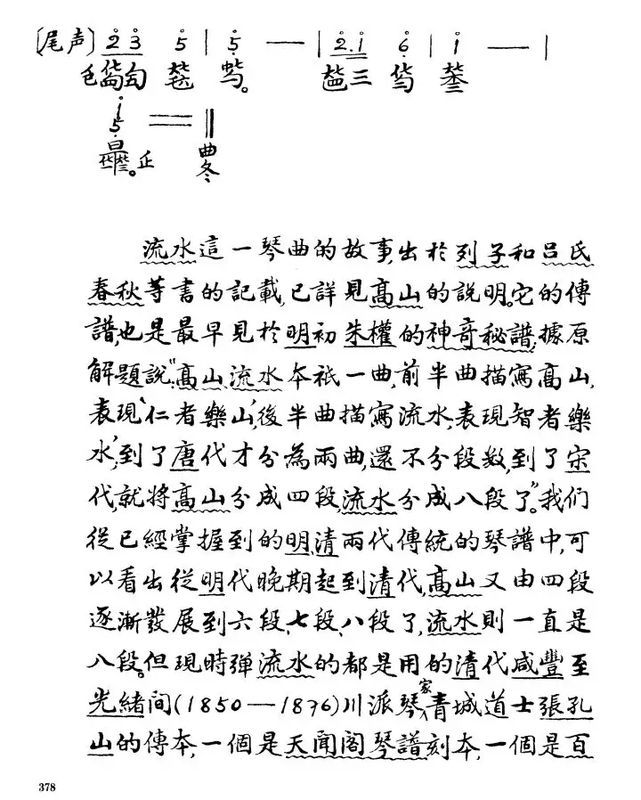 〔尾声〕2 3 5 | 5 — | 2.1 6 | 1 — |
三
1
5
正
曲冬
流水這一琴曲的故事,出於列子和呂氏
春秋等書的記載,已詳見高山的說明。它的傳
譜,也是最早見於明初朱權的神奇秘譜,據原
解題說:“高山、流水本祇一曲,前半曲描寫高山,
表現‘仁者樂山’,後半曲描寫流水,表現‘智者樂
水’,到了唐代才分為兩曲,還不分段數,到了宋
代,就將高山分成四段,流水分成八段了。”我们
從已經掌握到的明、清兩代傳統的琴譜中,可
以看出從明代晚期起到清代,高山又由四段
逐漸發展到六段、七段、八段了,流水則一直是
八段。但現時弹流水的都是用的清代咸豐至
光緒間(1850—1876)川派琴家青城道士張孔
山的傳本,一個是天聞阁琴譜刻本,一個是百
378